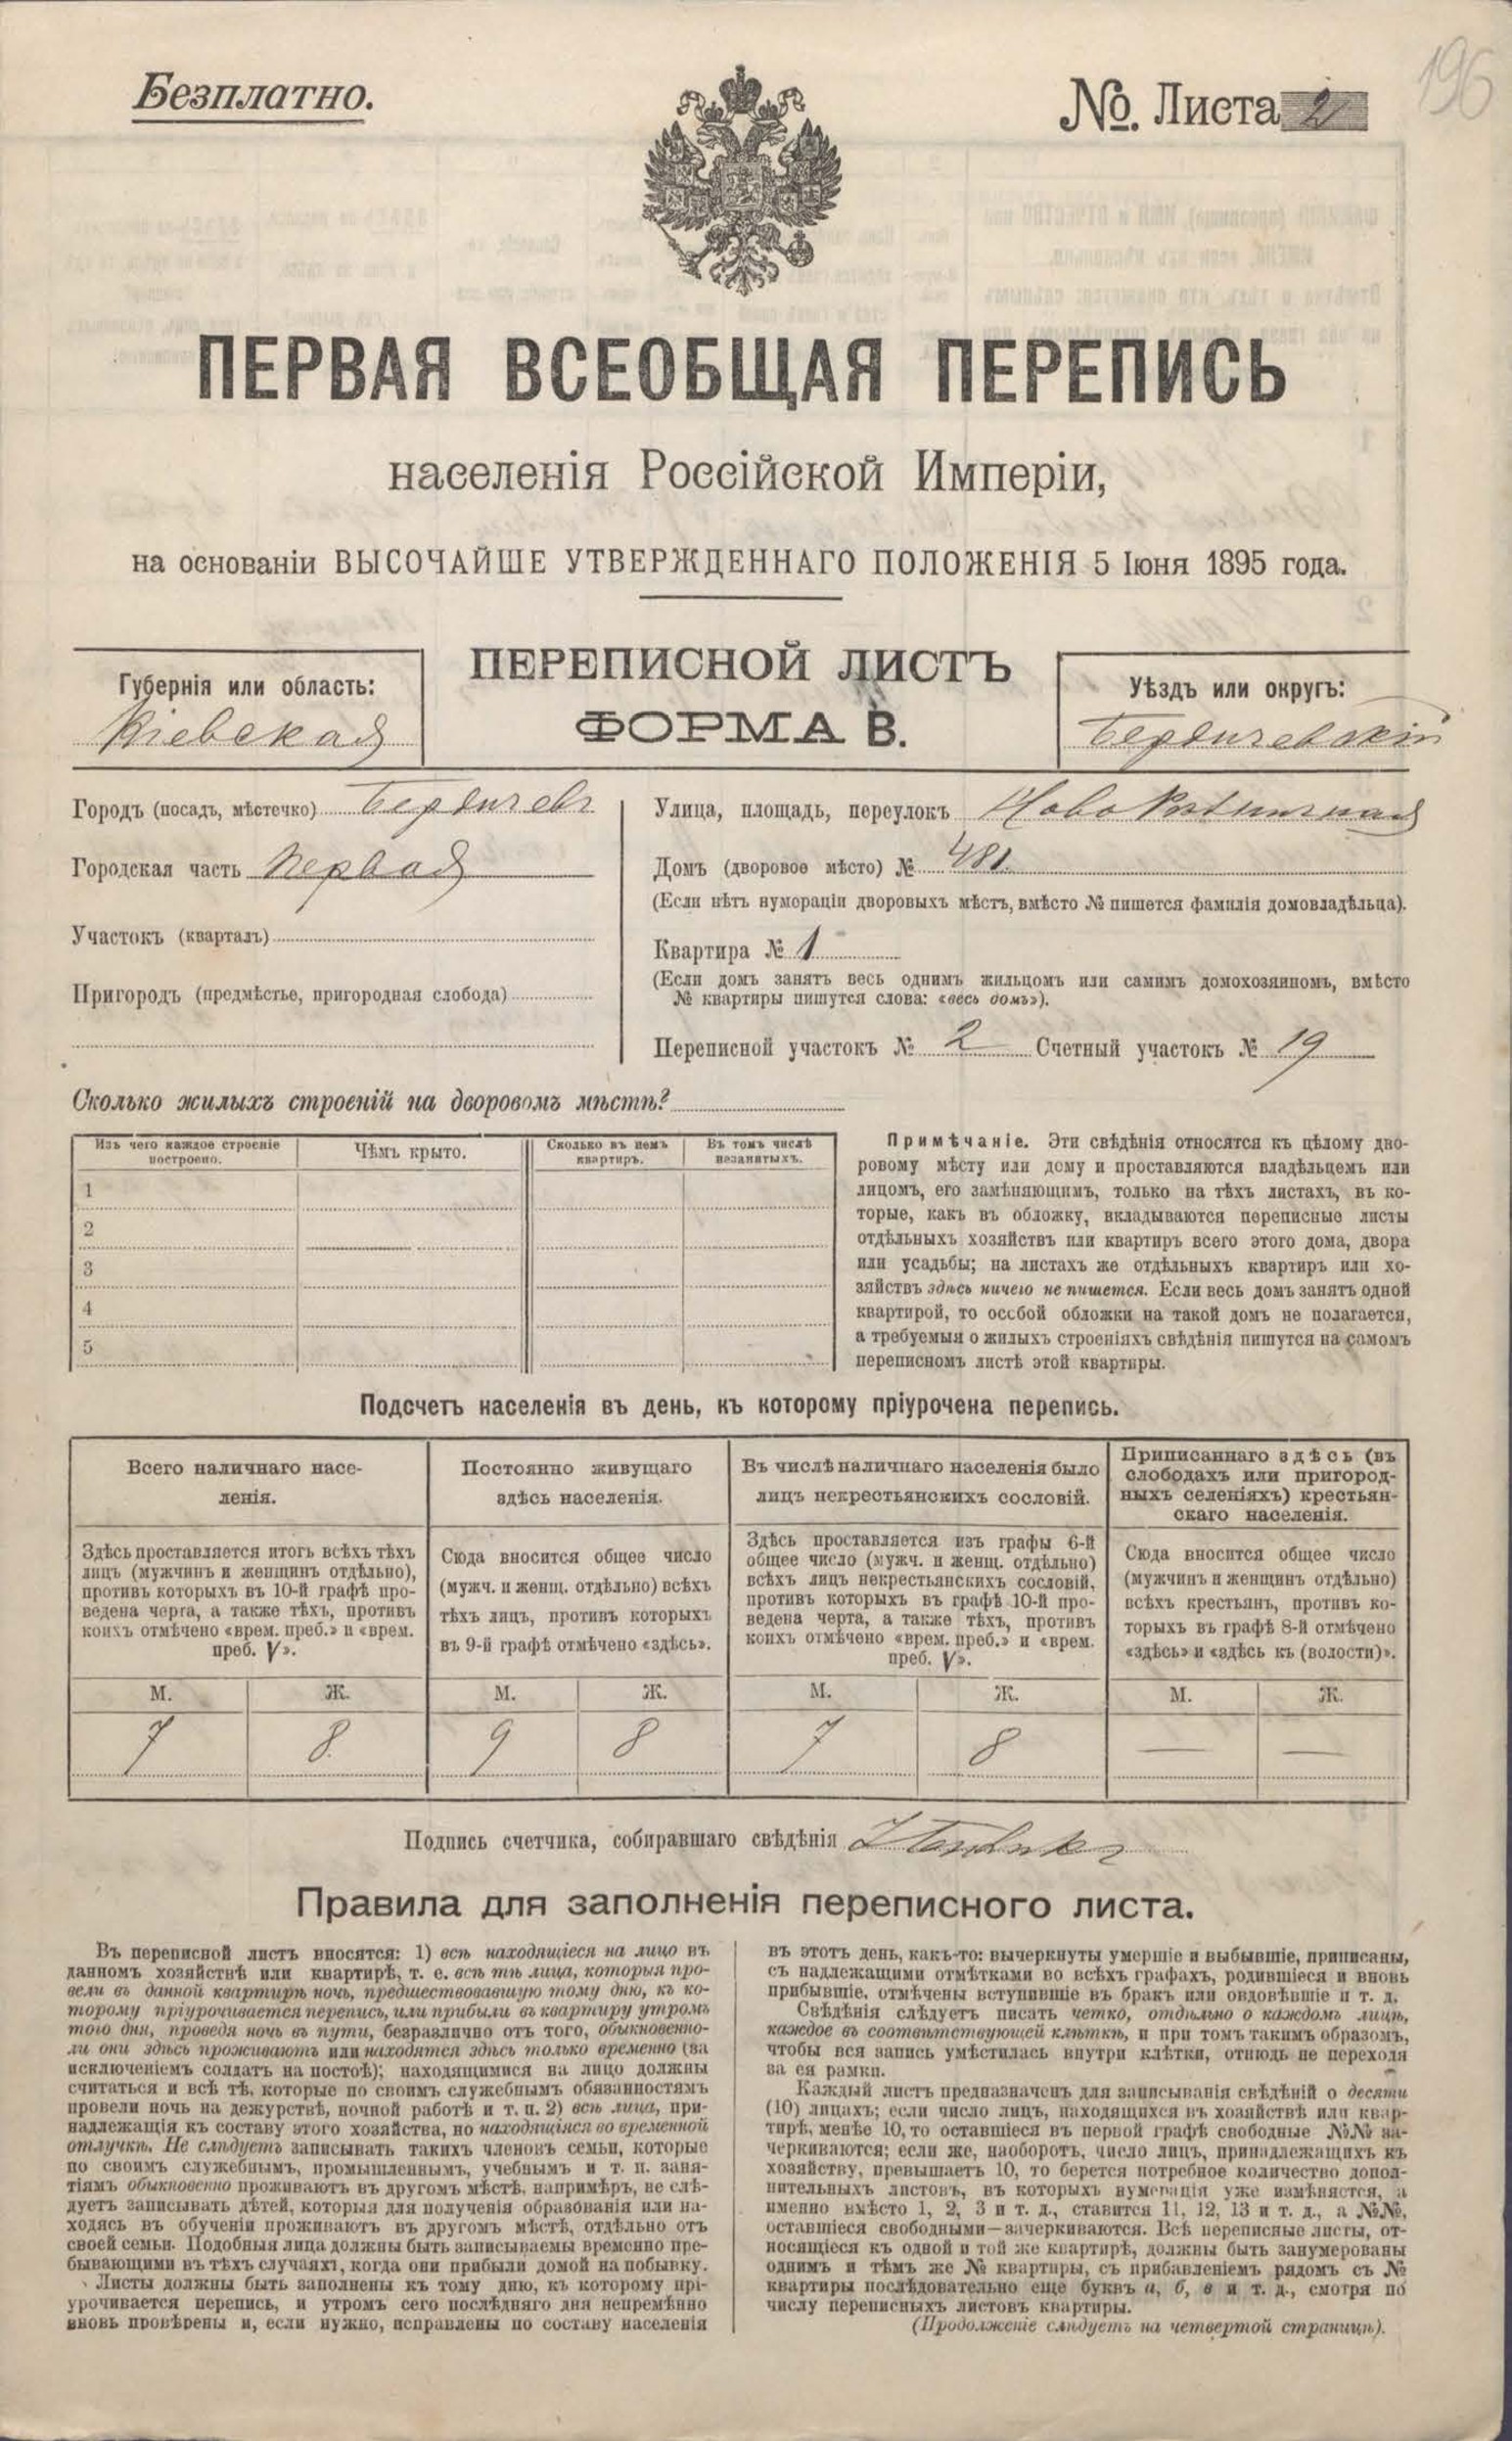 Безплатно.
№. Листа 2
196
ПЕРВАЯ ВСЕОБЩАЯ ПЕРЕПИСЬ
населенія Россійской Имперіи,
на основаніи ВЫСОЧАЙШЕ УТВЕРЖДЕННАГО ПОЛОЖЕНІЯ 5 Іюня 1895 года.
ПЕРЕПИСНОЙ ЛИСТЪ
ФОРМА В.
Губернія или область:
Кіевская
Уѣздъ или округъ:
Бердичевскій
Городъ (посадъ, мѣстечко) Бердичевъ
Городская часть Первая
Участокъ (кварталъ)
Пригородъ (предмѣстье, пригородная слобода)
Улица, площадь, переулокъ Ново
Домъ (дворовое мѣсто) № 481.
(Если нѣтъ нумораціи дворовыхъ мѣстъ, вмѣсто № пишется фамилія домовладѣльца).
Квартира № 1
(Если домъ занятъ весь однимъ жильцомъ или самимъ домохозяиномъ, вмѣсто
№ квартиры пишутся слова: «весь домъ»).
Переписной участокъ № 2 Счетный участокъ № 19
Сколько жилыхъ строеній на дворовомъ мѣстѣ?
Изъ чего каждое строеніе
построено.
Чѣмъ крыто.
Сколько въ немъ
квартиръ.
Въ томъ числѣ
незанятыхъ.
1
2
3
4
5
Примѣчаніе. Эти свѣдѣнія относятся къ цѣлому дво-
ровому мѣсту или дому и проставляются владѣльцемъ или
лицомъ, его замѣняющимъ, только на тѣхъ листахъ, въ ко-
торые, какъ въ обложку, вкладываются переписные листы
отдѣльныхъ хозяйствъ или квартиръ всего этого дома, двора
или усадьбы; на листахъ же отдѣльныхъ квартиръ или хо-
зяйствъ здѣсь ничего не пишется. Если весь домъ занятъ одной
квартирой, то особой обложки на такой домъ не полагается,
а требуемыя о жилыхъ строеніяхъ свѣдѣнія пишутся на самомъ
переписномъ листѣ этой квартиры.
Подсчетъ населенія въ день, къ которому пріурочена перепись.
Всего наличнаго насе-
ленія.
Постоянно живущаго
здѣсь населенія.
Въ числѣ наличнаго населенія было
лицъ некрестьянскихъ сословій.
Приписаннаго здѣсь (въ
слободахъ или пригород-
ныхъ селеніяхъ) крестьян-
скаго населенія.
Здѣсь проставляется итогъ всѣхъ тѣхъ
лицъ (мужчинъ и женщинъ отдѣльно),
противъ которыхъ въ 10-й графѣ про-
ведена черта, а также тѣхъ, противъ
коихъ отмѣчено «врем. преб.» и «врем.
преб. V».
Сюда вносится общее число
(мужч. и женщ. отдѣльно) всѣхъ
тѣхъ лицъ, противъ которыхъ
въ 9-й графѣ отмѣчено «здѣсь».
Здѣсь проставляется изъ графы 6-й
общее число (мужч. и женщ. отдѣльно)
всѣхъ лицъ некрестьянскихъ сословій,
противъ которыхъ въ графѣ 10-й про-
ведена черта, а также тѣхъ, противъ
коихъ отмѣчено «врем. преб.» и «врем.
преб. V».
Сюда вносится общее число
(мужчинъ и женщинъ отдѣльно)
всѣхъ крестьянъ, противъ ко-
торыхъ въ графѣ 8-й отмѣчено
«здѣсь» и «здѣсь къ (волости)».
М. Ж. М. Ж. М. Ж. М. Ж.
7 8 9 8 7 8 — —
Подпись счетчика, собиравшаго свѣдѣнія
Правила для заполненія переписного листа.
Въ переписной листъ вносятся: 1) всѣ находящіеся на лицо въ
данномъ хозяйствѣ или квартирѣ, т. е. всѣ тѣ лица, которыя про-
вели въ данной квартирѣ ночь, предшествовавшую тому дню, къ ко-
торому пріурочивается перепись, или прибыли въ квартиру утромъ
того дня, проведя ночь въ пути, безразлично отъ того, обыкновенно-
ли они здѣсь проживаютъ или находятся здѣсь только временно (за
исключеніемъ солдатъ на постоѣ); находящимися на лицо должны
считаться и всѣ тѣ, которые по своимъ служебнымъ обязанностямъ
провели ночь на дежурствѣ, ночной работѣ и т. п. 2) всѣ лица, при-
надлежащія къ составу этого хозяйства, но находящіяся во временной
отлучкѣ. Не слѣдуетъ записывать такихъ членовъ семьи, которые
по своимъ служебнымъ, промышленнымъ, учебнымъ и т. п. заня-
тіямъ обыкновенно проживаютъ въ другомъ мѣстѣ, напримѣръ, не слѣ-
дуетъ записывать дѣтей, которыя для полученія образованія или на-
ходясь въ обученіи проживаютъ въ другомъ мѣстѣ, отдѣльно отъ
своей семьи. Подобныя лица должны быть записываемы временно пре-
бывающими въ тѣхъ случаяхъ, когда они прибыли домой на побывку.
Листы должны быть заполнены къ тому дню, къ которому прі-
урочивается перепись, и утромъ сего послѣдняго дня непремѣнно
вновь провѣрены и, если нужно, исправлены по составу населенія
въ этотъ день, какъ-то: вычеркнуты умершіе и выбывшіе, приписаны,
съ надлежащими отмѣтками во всѣхъ графахъ, родившіеся и вновь
прибывшіе, отмѣчены вступившіе въ бракъ или овдовѣвшіе и т. д.
Свѣдѣнія слѣдуетъ писать четко, отдѣльно о каждомъ лицѣ,
каждое въ соотвѣтствующей клѣткѣ, и при томъ такимъ образомъ,
чтобы вся запись умѣстилась внутри клѣтки, отнюдь не переходя
за ея рамки.
Каждый листъ предназначенъ для записыванія свѣдѣній о десяти
(10) лицахъ; если число лицъ, находящихся въ хозяйствѣ или квар-
тирѣ, менѣе 10, то оставшіеся въ первой графѣ свободные №№ за-
черкиваются; если же, наоборотъ, число лицъ, принадлежащихъ къ
хозяйству, превышаетъ 10, то берется потребное количество допол-
нительныхъ листовъ, въ которыхъ нумерація уже измѣняется, а
именно вмѣсто 1, 2, 3 и т. д., ставится 11, 12, 13 и т. д., а №№,
оставшіеся свободными—зачеркиваются. Всѣ переписные листы, от-
носящіеся къ одной и той же квартирѣ, должны быть занумерованы
однимъ и тѣмъ же № квартиры, съ прибавленіемъ рядомъ съ №
квартиры послѣдовательно еще буквъ а, б, в и т. д., смотря по
числу переписныхъ листовъ квартиры.
(Продолженіе слѣдуетъ на четвертой страницѣ).